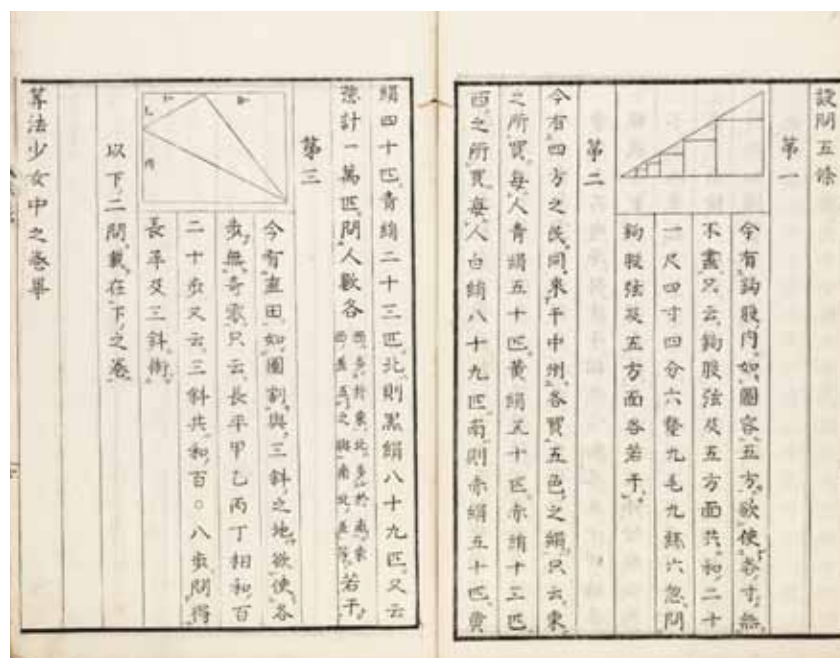 設問五條
第一
今有鈎股内如圖容五方欲使各寸無
不盡只云鈎股弦及五方面共和二十
一尺四寸四分六釐九毛九絲六忽問
鈎股弦及五方面各若干
第二
今有四方之民同來于中州各買五色之絹只云東
之所買每人青絹五十匹黄絹五十匹赤絹十三匹
西之所買每人白絹八十九匹南則赤絹五十匹黄
絹四十匹青絹二十三匹北則黒絹八十九匹又云
惣計一萬匹問人數各西多於東北多於南東西差五之與南北差等若干
第三
今有直田如圖割與三斜之地欲使各
歩無奇零只云長平甲乙丙丁相和百
二十歩又云三斜共和百〇八歩問得
長平及三斜術
以下二問載在下之卷
筭法少女中之卷畢